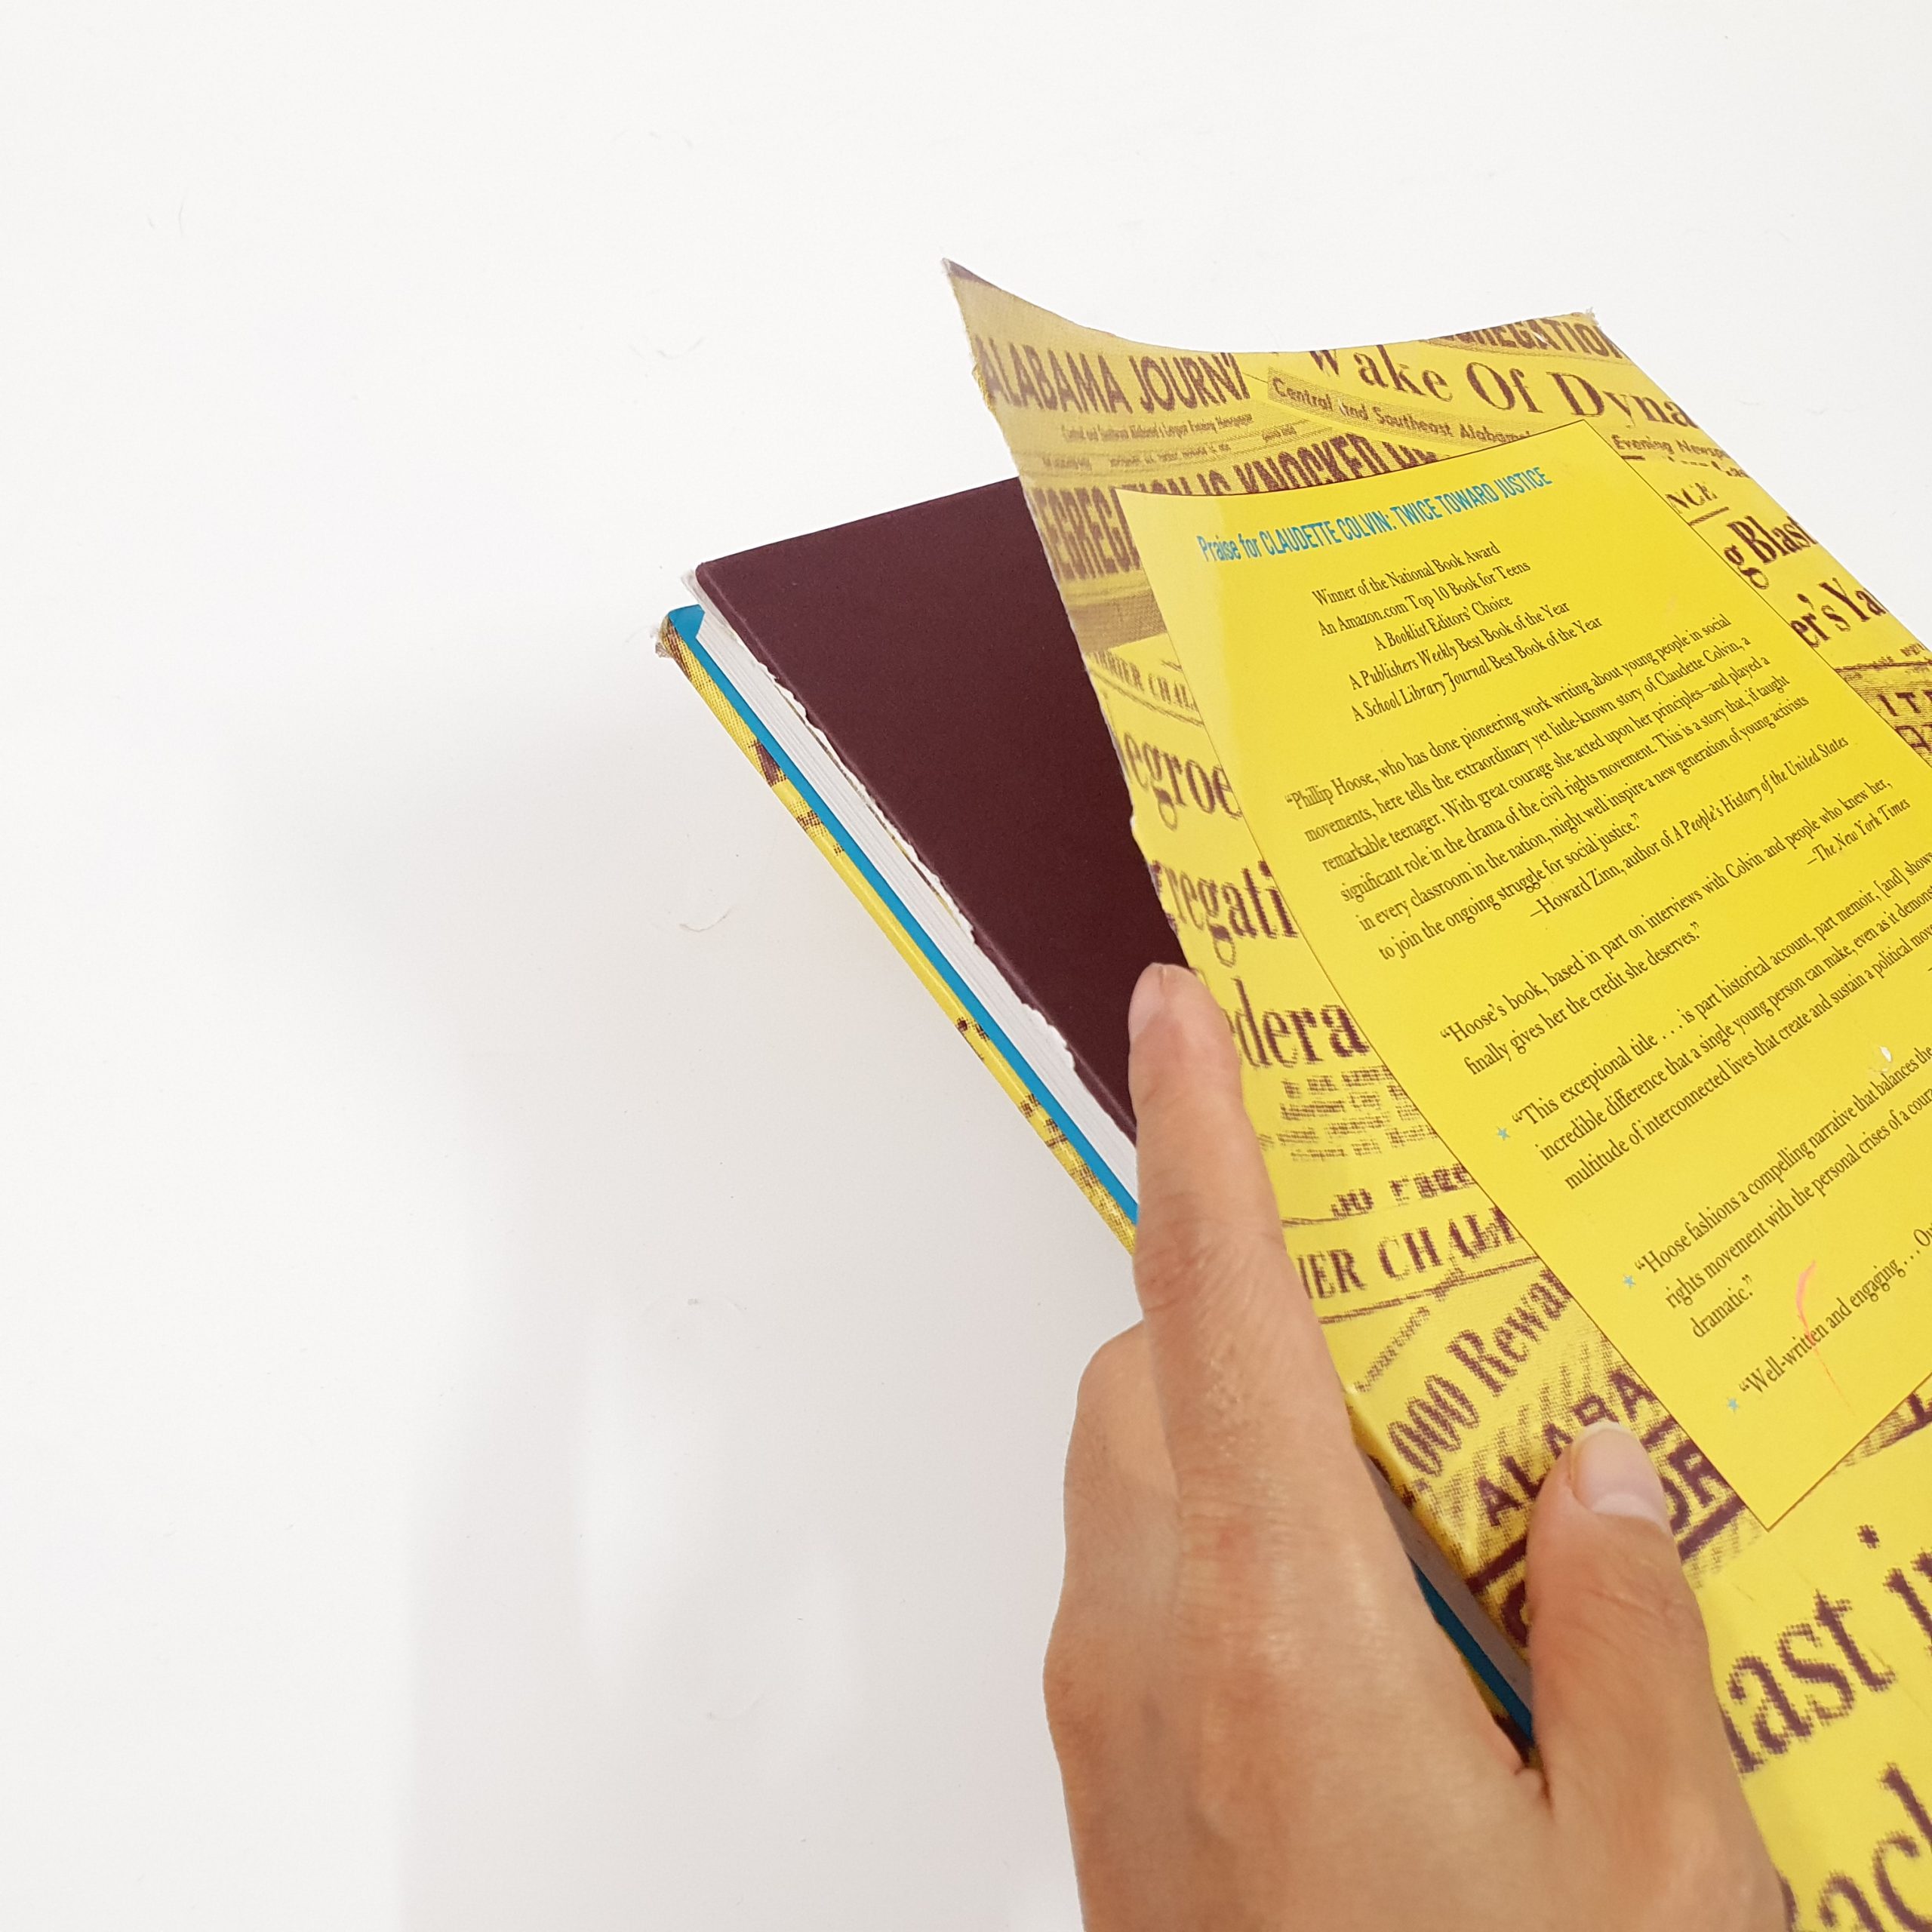 ALABAMA JOURN
Wake Of Dyna
Central and Southeast Alabama's
Evening Newsp
EGREGATION IS KNOCKED
Praise for CLAUDETTE COLVIN: TWICE TOWARD JUSTICE
Winner of the National Book Award
An Amazon.com Top 10 Book for Teens
A Booklist Editors' Choice
A Publishers Weekly Best Book of the Year
A School Library Journal Best Book of the Year
“Phillip Hoose, who has done pioneering work writing about young people in social
movements, here tells the extraordinary yet little-known story of Claudette Colvin, a
remarkable teenager. With great courage she acted upon her principles—and played a
significant role in the drama of the civil rights movement. This is a story that, if taught
in every classroom in the nation, might well inspire a new generation of young activists
to join the ongoing struggle for social justice.”
—Howard Zinn, author of A People's History of the United States
“Hoose's book, based in part on interviews with Colvin and people who knew her,
finally gives her the credit she deserves.”
—The New York Times
“This exceptional title . . . is part historical account, part memoir, [and] shows
incredible difference that a single young person can make, even as it demons
multitude of interconnected lives that create and sustain a political mov
“Hoose fashions a compelling narrative that balances the
rights movement with the personal crises of a cour
dramatic.”
“Well-written and engaging . . . Ou
g Blast
er's Ya
egroe
regati
dera
IER CHAL
,000 Rewa
ALABA
last i